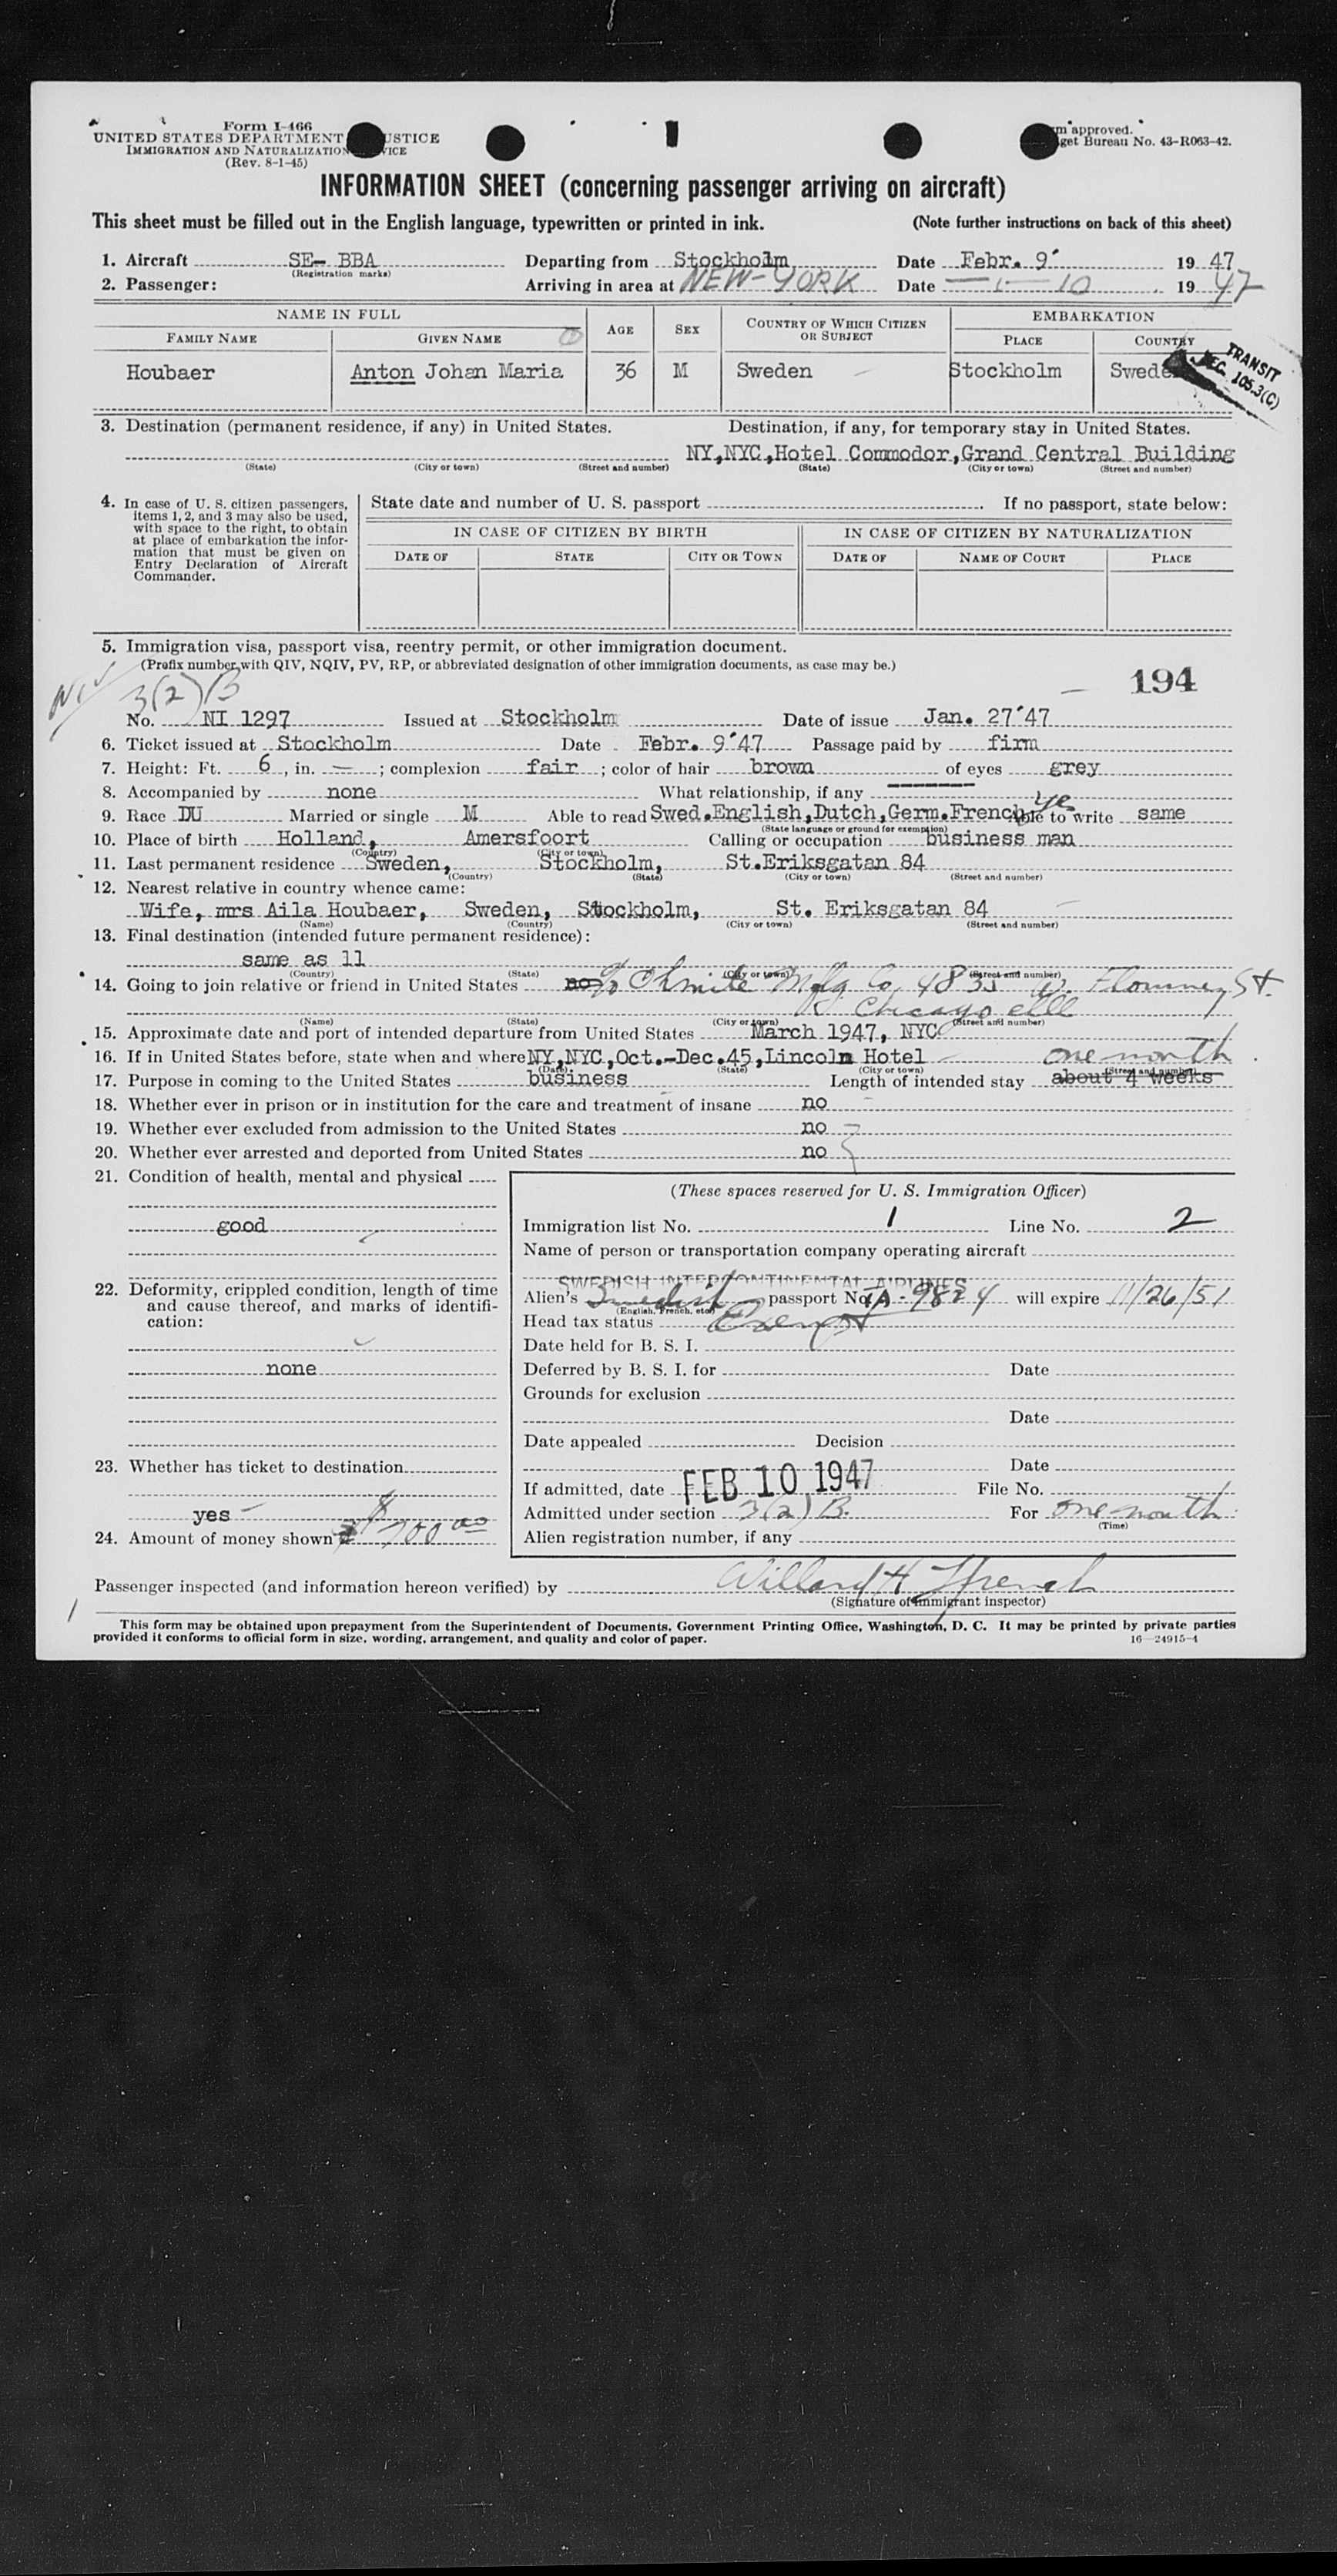 Form I-466
UNITED STATES DEPARTMENT USTICE
IMMIGRATION AND NATURALIZATION VICE
(Rev. 8-1-45)
m approved.
get Bureau No. 43-R063-42.
INFORMATION SHEET (concerning passenger arriving on aircraft)
This sheet must be filled out in the English language, typewritten or printed in ink. (Note further instructions on back of this sheet)
1. Aircraft SE- BBA Departing from Stockholm Date Febr. 9' 19 47
(Registration marks)
2. Passenger: Arriving in area at NEW-YORK Date 10 19 47
NAME IN FULL AGE SEX COUNTRY OF WHICH CITIZEN OR SUBJECT EMBARKATION
FAMILY NAME GIVEN NAME PLACE COUNTRY
Houbaer Anton Johan Maria 36 M Sweden Stockholm Swede
TRANSIT
105.3(C)
3. Destination (permanent residence, if any) in United States. Destination, if any, for temporary stay in United States.
NY,NYC,Hotel Commodor,Grand Central Building
(State) (City or town) (Street and number) (State) (City or town) (Street and number)
4. In case of U. S. citizen passengers, items 1, 2, and 3 may also be used, with space to the right, to obtain at place of embarkation the information that must be given on Entry Declaration of Aircraft Commander.
State date and number of U. S. passport If no passport, state below:
IN CASE OF CITIZEN BY BIRTH IN CASE OF CITIZEN BY NATURALIZATION
DATE OF STATE CITY OR TOWN DATE OF NAME OF COURT PLACE
5. Immigration visa, passport visa, reentry permit, or other immigration document.
(Prefix number with QIV, NQIV, PV, RP, or abbreviated designation of other immigration documents, as case may be.)
194
NIV
3(2)B
No. NI 1297 Issued at Stockholm Date of issue Jan. 27'47
6. Ticket issued at Stockholm Date Febr. 9'47 Passage paid by firm
7. Height: Ft. 6, in. — ; complexion fair ; color of hair brown of eyes grey
8. Accompanied by none What relationship, if any
yes
9. Race DU Married or single M Able to read Swed.English,Dutch,Germ.French Able to write same
(State language or ground for exemption)
10. Place of birth Holland, Amersfoort Calling or occupation business man
(Country) (City or town)
11. Last permanent residence Sweden, Stockholm, St.Eriksgatan 84
(Country) (State) (City or town) (Street and number)
12. Nearest relative in country whence came:
Wife, mrs Aila Houbaer, Sweden, Stockholm, St. Eriksgatan 84
(Name) (Country) (City or town) (Street and number)
13. Final destination (intended future permanent residence):
same as 11
(Country) (State) (City or town) (Street and number)
14. Going to join relative or friend in United States no c/o Ohmite Mfg. Co. 4835 W. Flournoy St.
Chicago Ill
(Name) (State) (City or town) (Street and number)
15. Approximate date and port of intended departure from United States March 1947, NYC
16. If in United States before, state when and where NY,NYC,Oct.-Dec.45,Lincoln Hotel one month
(Date) (State) (City or town) (Street and number)
17. Purpose in coming to the United States business Length of intended stay about 4 weeks
18. Whether ever in prison or in institution for the care and treatment of insane no
19. Whether ever excluded from admission to the United States no
20. Whether ever arrested and deported from United States no
21. Condition of health, mental and physical
good
22. Deformity, crippled condition, length of time and cause thereof, and marks of identification:
none
23. Whether has ticket to destination
yes
24. Amount of money shown $ 700 00
(These spaces reserved for U. S. Immigration Officer)
Immigration list No. 1 Line No. 2
Name of person or transportation company operating aircraft
SWEDISH INTERCONTINENTAL AIRLINES
Alien's Swedish passport No. IA-9824 will expire 11/26/51
(English, French, etc.)
Head tax status Exempt
Date held for B. S. I.
Deferred by B. S. I. for Date
Grounds for exclusion
Date
Date appealed Decision
Date
If admitted, date FEB 10 1947 File No.
Admitted under section 3(2)B. For one month
(Time)
Alien registration number, if any
Passenger inspected (and information hereon verified) by Willard H. Ffrench
(Signature of immigrant inspector)
This form may be obtained upon prepayment from the Superintendent of Documents, Government Printing Office, Washington, D. C. It may be printed by private parties
provided it conforms to official form in size, wording, arrangement, and quality and color of paper. 16—24915-4